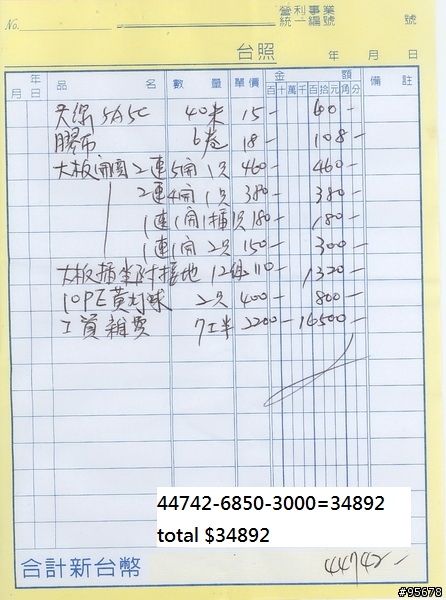 No.
營利事業
統一編號
號
台照 年 月 日
年 月 日 品名 數量 單價 金額 備註
百十萬千百拾元角分
5A5C 40米 15- 600-
膠布 6卷 18- 108-
大板開關二連5開 1只 460- 460-
2連4開 1只 380- 380-
1連1開1插 1只 180- 180-
1連1開 2只 150- 300-
大板插坐附接地 12組 110- 1320-
10PE黃灯球 2只 400- 800-
工資雜費 7工半 2200- 16500-
44742-6850-3000=34892
total $34892
合計新台幣 44742-
#95678